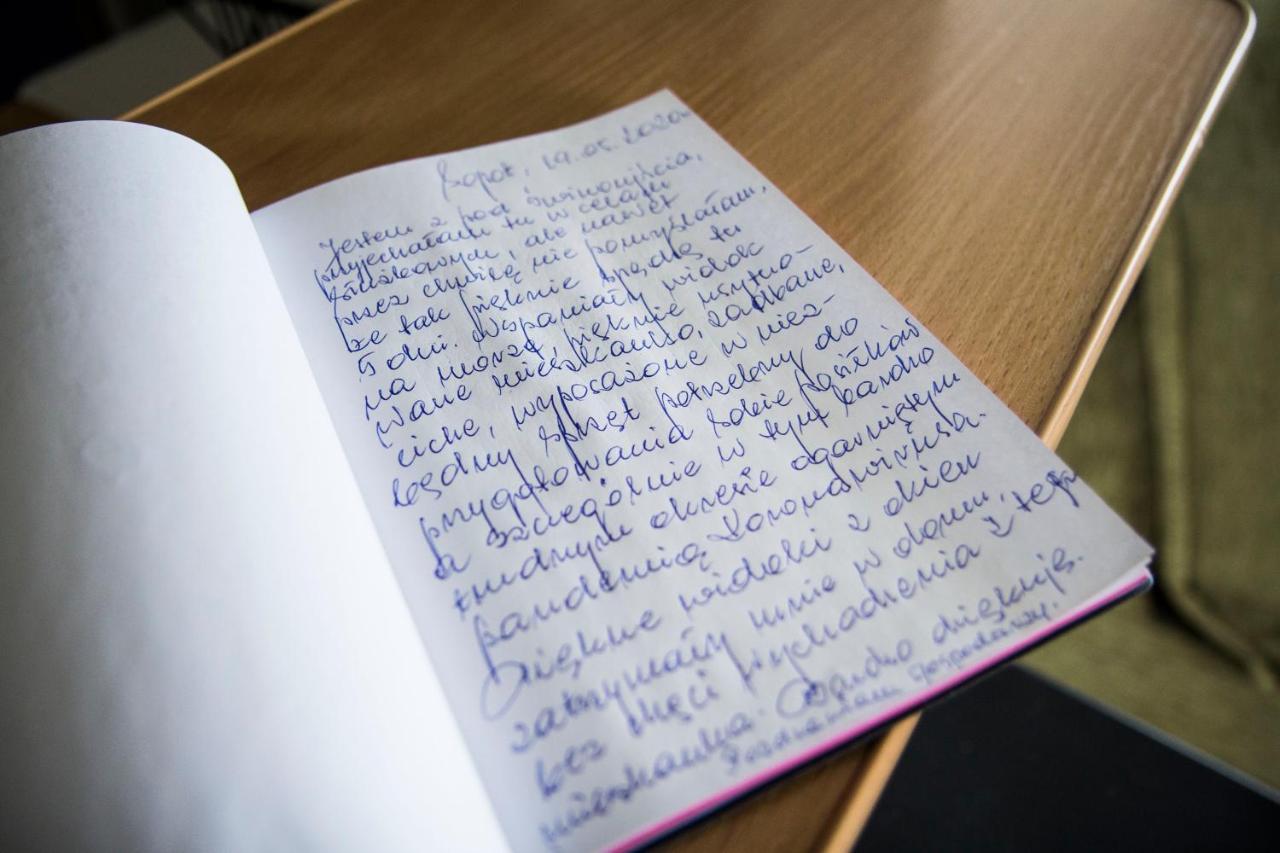 Sopot, 19.05.2020
Jestem z pod Świnoujścia,
przyjechałam tu w celach
służbowych, ale nawet
przez chwilę nie pomyślałam,
że tak pięknie spędzę tu
5 dni. Wspaniały widok
na morze, pięknie usytuo-
wane mieszkanko, zadbane,
ciche, wyposażone w niez-
będny sprzęt potrzebny do
przygotowania sobie posiłków
a szczególnie w tym bardzo
trudnym okresie ogarniętym
pandemią Koronawirusa.
Piękne widoki z okien
zatrzymały mnie w domu,
bez chęci wychodzenia z tego
mieszkanka. Bardzo dziękuję.
Pozdrawiam gospodarzy.